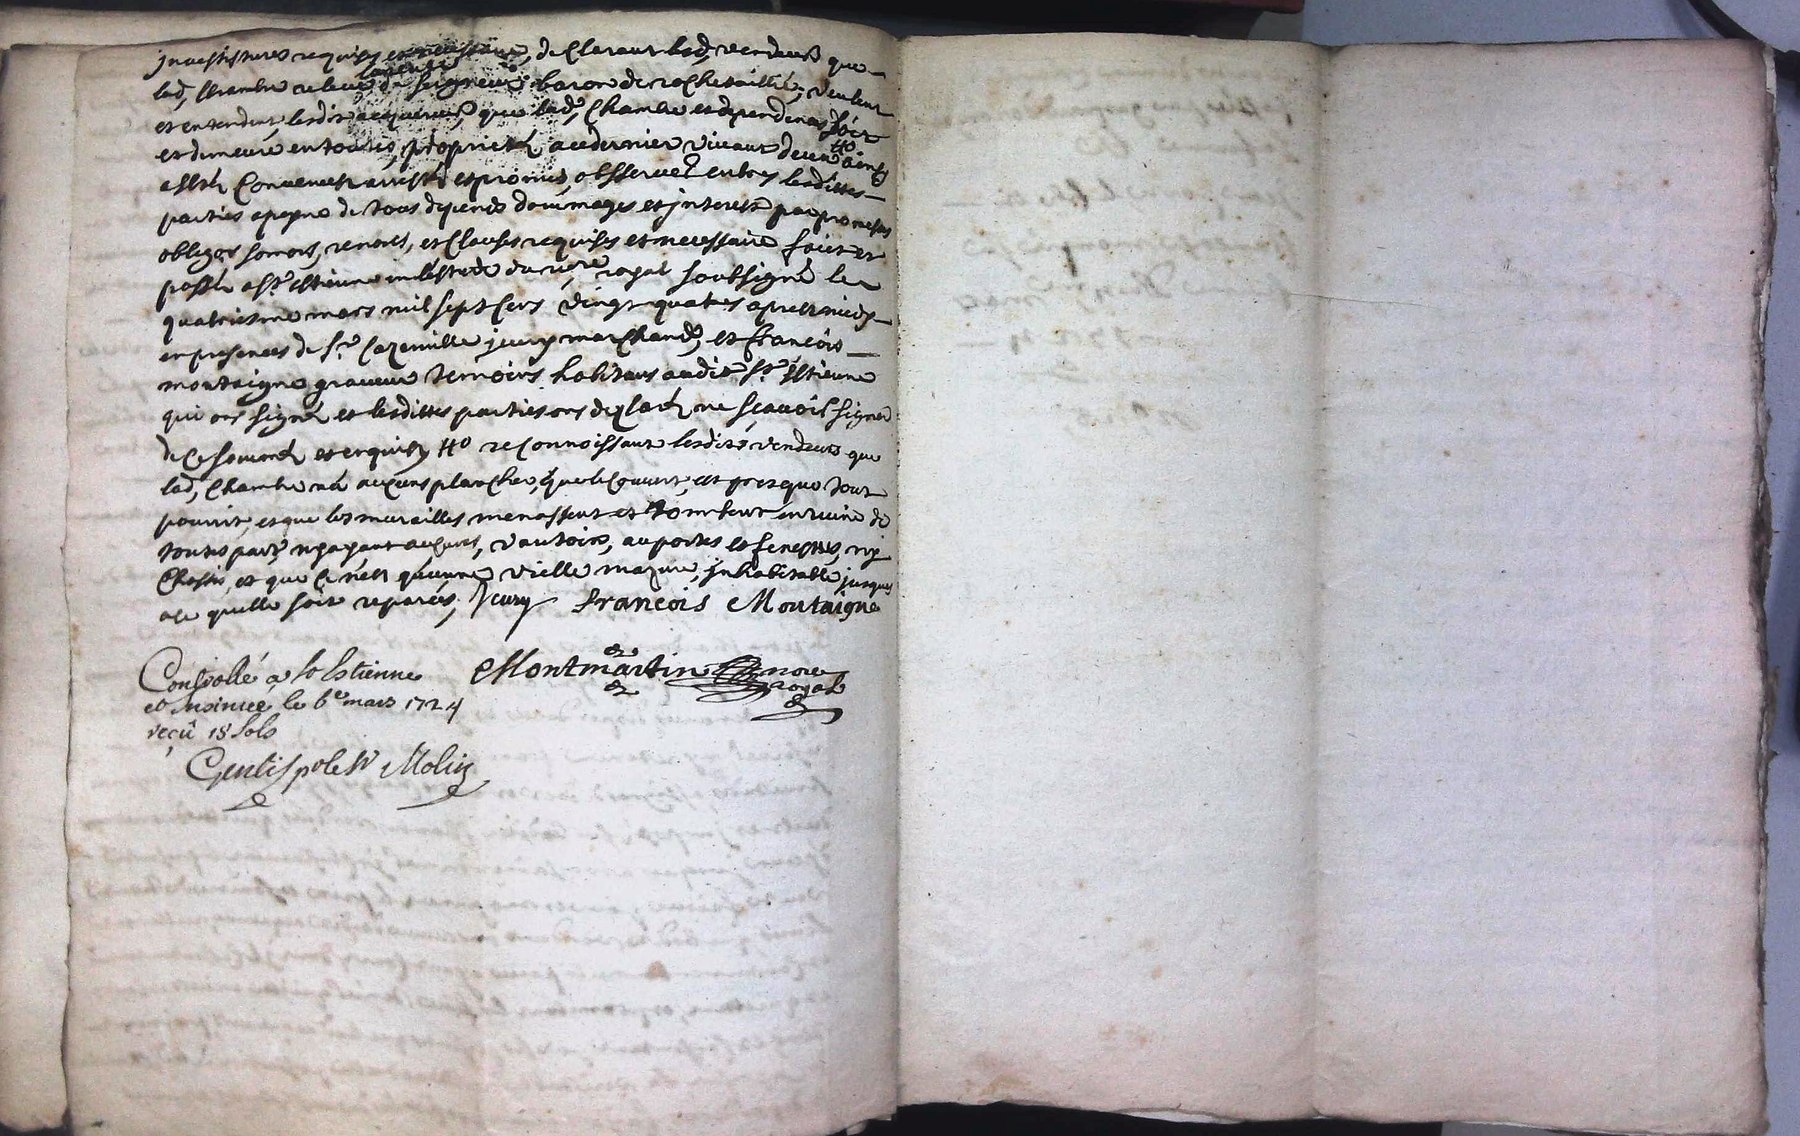 investitures requises et necessaire, declarant lesd, vendeurs que
lad, chambre releve du seigneur baron de rochetaillée, veulent
et entendent lesdits acquereurs, que lad, chambre et dependences soit
et demeure en toutes, proprieté au dernier vivant d'eux Ho ainsy
a esté convenu arresté et promis, observer entres lesdittes
parties a peyne de tous depends dommages et interests par promesses
obliges somons, renonces, et clauses requises et necessaire faict et
passé a st estienne en l'estude du nore, royal soubsigné le
quatriesme mars mil sept cens vingt quatres apres midy
en presences de sr Jeury marchand, et francois
montaigne graveur temoins habitans audit st Estienne
qui ont signé et lesdittes parties ont declaré ne scavoir signer
de ce sommé et enquis, Ho reconnoissant lesdits vendeurs que
lad, chambre n'a aucuns plancher, que le couvert, est presque tout
pourrit, et que les murailles menassent et tombent en ruine de
toutes part, n'ayant aucunes, vantoirs, au portes et fenestres, ny
chassis, et que ce n'est qu'une vielle mazure, inhabitable jusques
a ce quelle soit reparées, Jeury francois Montaigne
Montmartin nore
royal
Controllé a St Estienne
et insinuée le 6e mars 1724
reçû 18 sols
Gentis pole Sr Molin